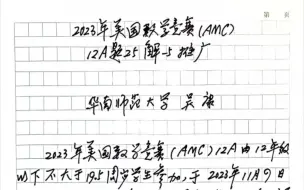 第 页
2023年美国数学竞赛(AMC)
12A题25解与推广
华南师范大学 吴康
2023年美国数学竞赛(AMC)12A由12年级
以下不大于19.5周岁学生参加,于2023年11月9日